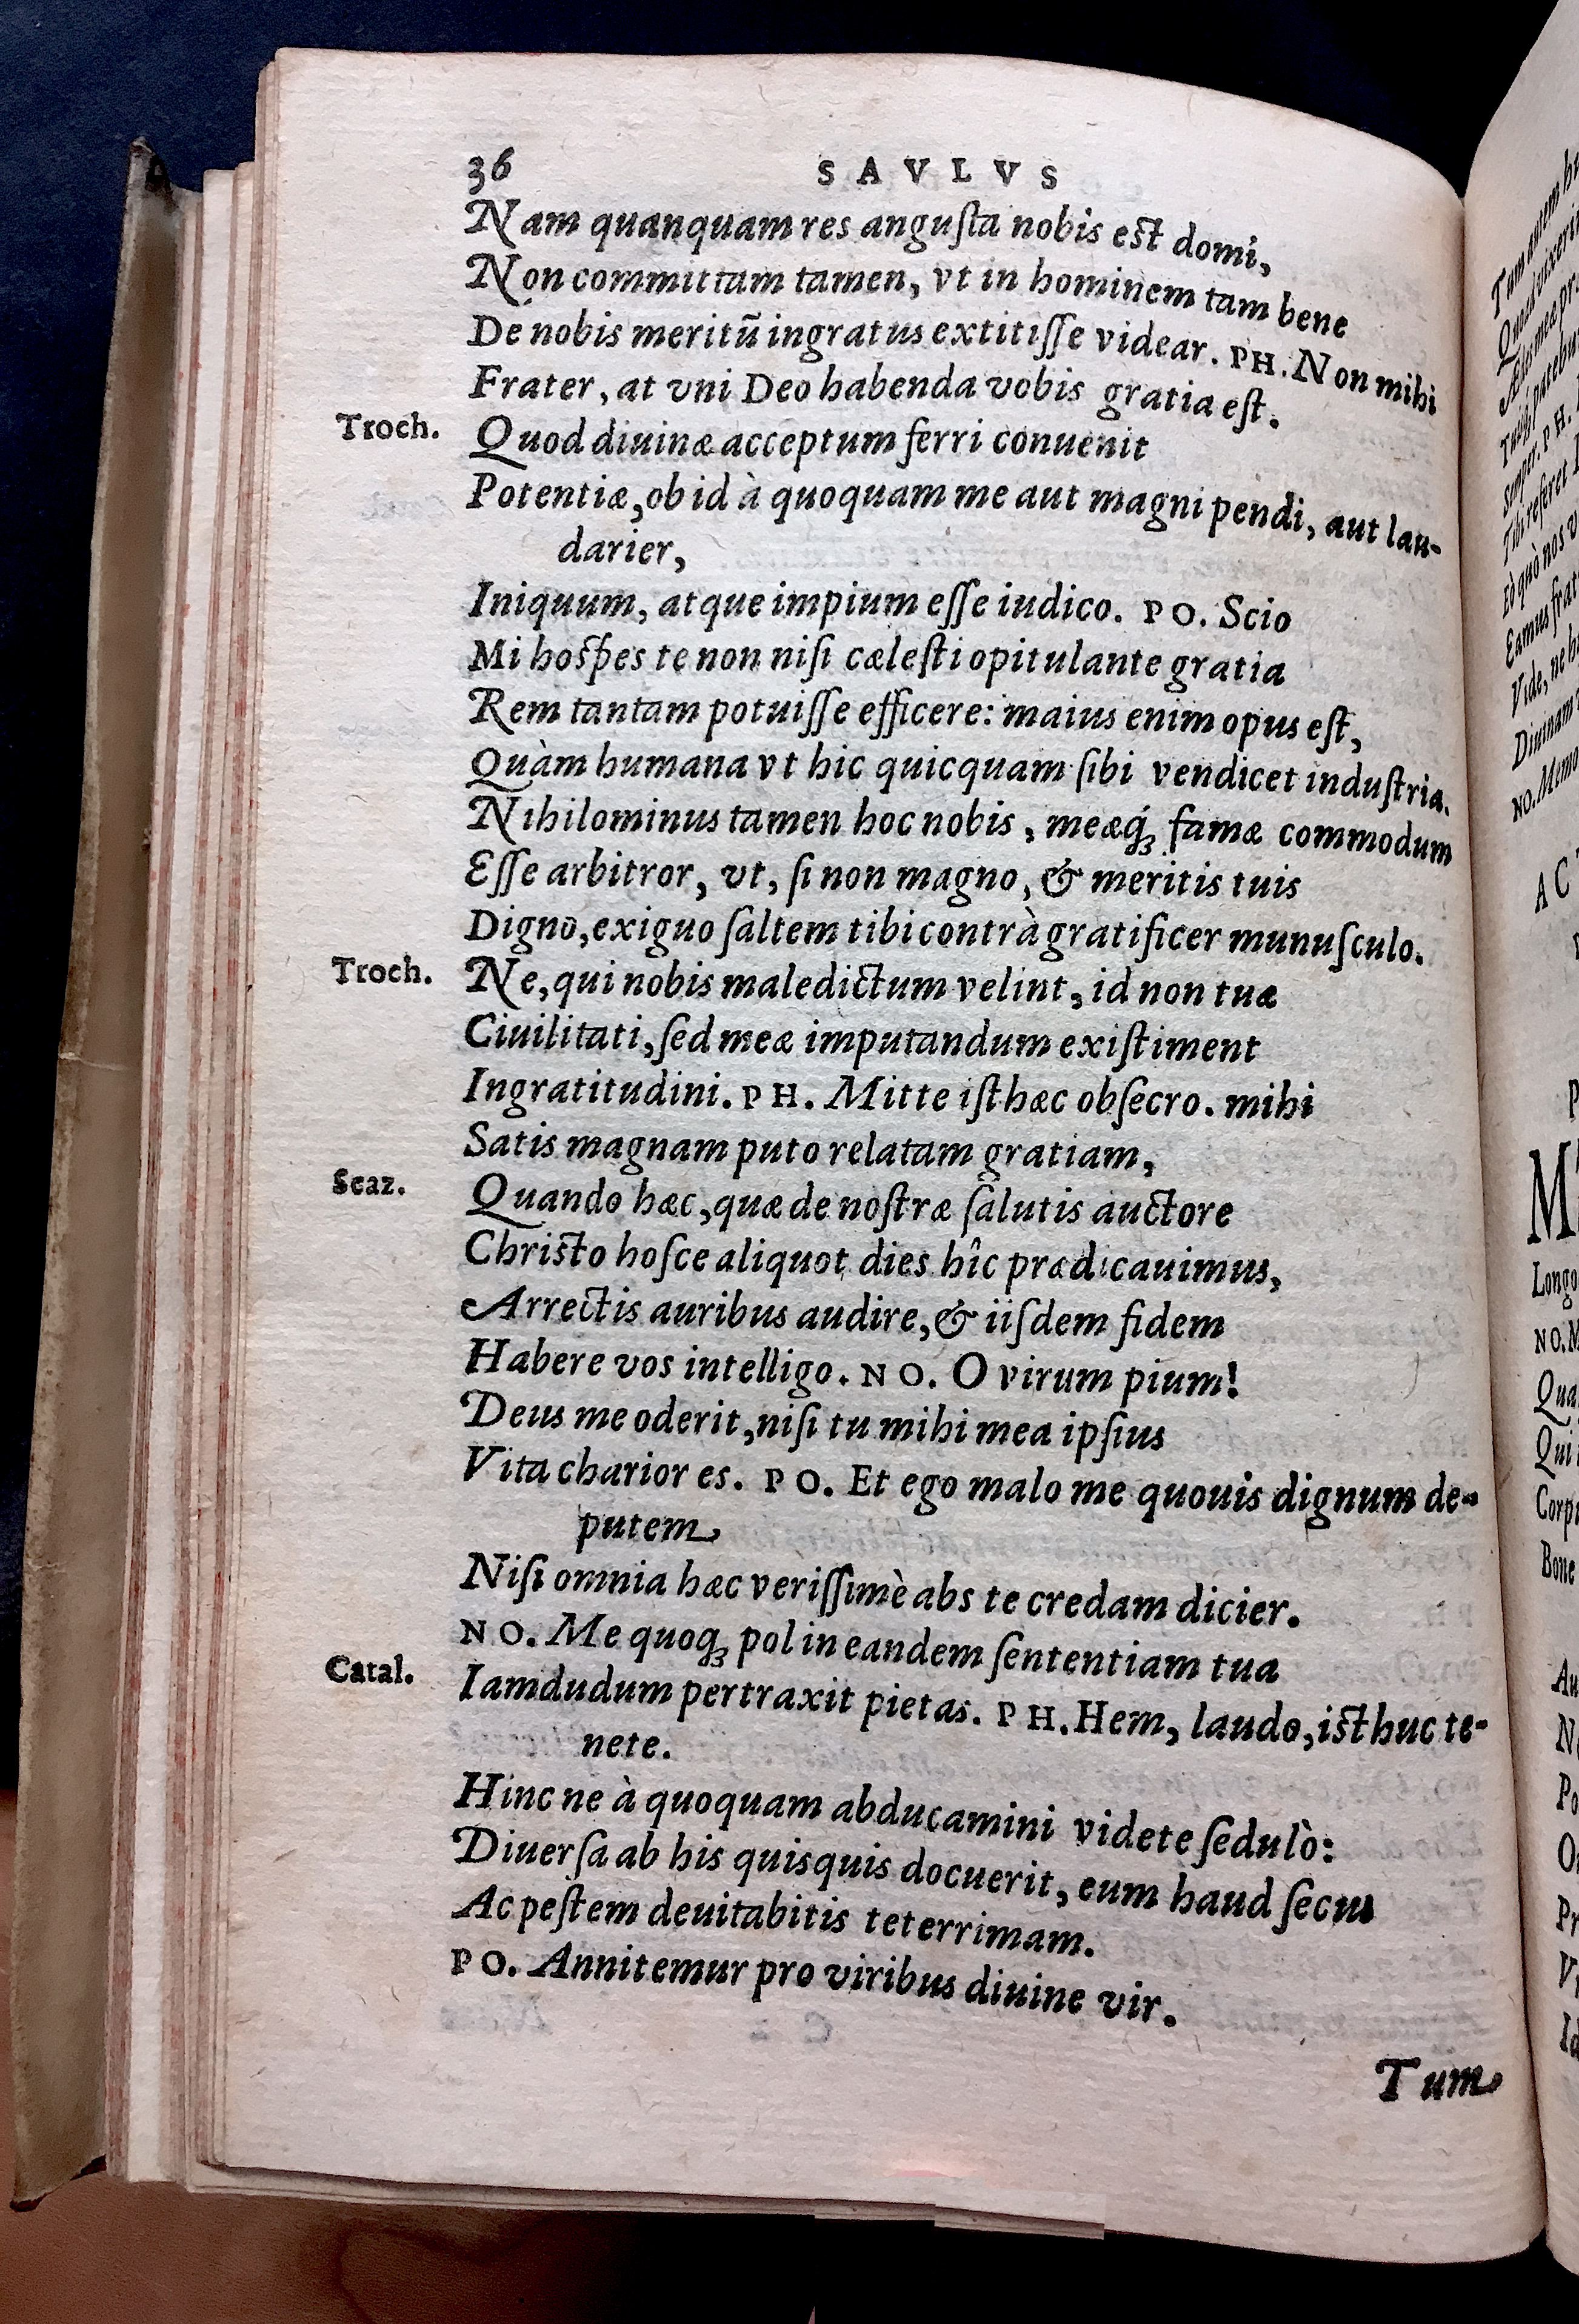 36 SAVLVS
Nam quanquam res anguſta nobis eſt domi,
Non committam tamen, vt in hominem tam bene
De nobis meritũ ingratus extitiſſe videar. PH. Non mihi
Frater, at vni Deo habenda vobis gratia eſt.
Troch. Quod diuinæ acceptum ferri conuenit
Potentiæ, ob id à quoquam me aut magni pendi, aut lau-
darier,
Iniquum, atque impium eſſe iudico. PO. Scio
Mi hoſpes te non niſi cæleſti opitulante gratia
Rem tantam potuiſſe efficere: maius enim opus eſt,
Quàm humana vt hic quicquam ſibi vendicet induſtria.
Nihilominus tamen hoc nobis, meæq́; famæ commodum
Eſſe arbitror, vt, ſi non magno, & meritis tuis
Digno, exiguo ſaltem tibi contrà gratificer munuſculo.
Troch. Ne, qui nobis maledictum velint, id non tuæ
Ciuilitati, ſed meæ imputandum exiſtiment
Ingratitudini. PH. Mitte iſthæc obſecro. mihi
Satis magnam puto relatam gratiam,
Scaz. Quando hæc, quæ de noſtræ ſalutis auctore
Chriſto hoſce aliquot dies hîc prædicauimus,
Arrectis auribus audire, & iiſdem fidem
Habere vos intelligo. NO. O virum pium!
Deus me oderit, niſi tu mihi mea ipſius
Vita charior es. PO. Et ego malo me quouis dignum de-
putem
Niſi omnia hæc veriſſimè abs te credam dicier.
NO. Me quoq; pol in eandem ſententiam tua
Catal. Iamdudum pertraxit pietas. PH. Hem, laudo, iſthuc te-
nete.
Hinc ne à quoquam abducamini videte ſedulò:
Diuerſa ab his quisquis docuerit, eum haud ſecus
Ac peſtem deuitabitis teterrimam.
PO. Annitemur pro viribus diuine vir.
Tum